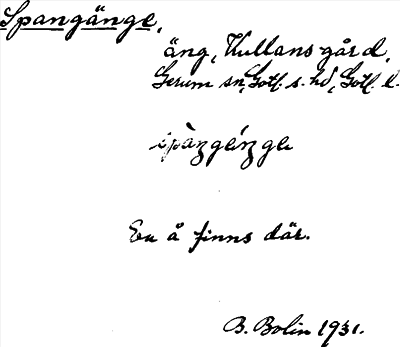 Spangänge,
äng, Kullans gård,
Gerum sn, Gotl. s. hd, Gotl. l.
En å finns där.
B. Bolin 1931.